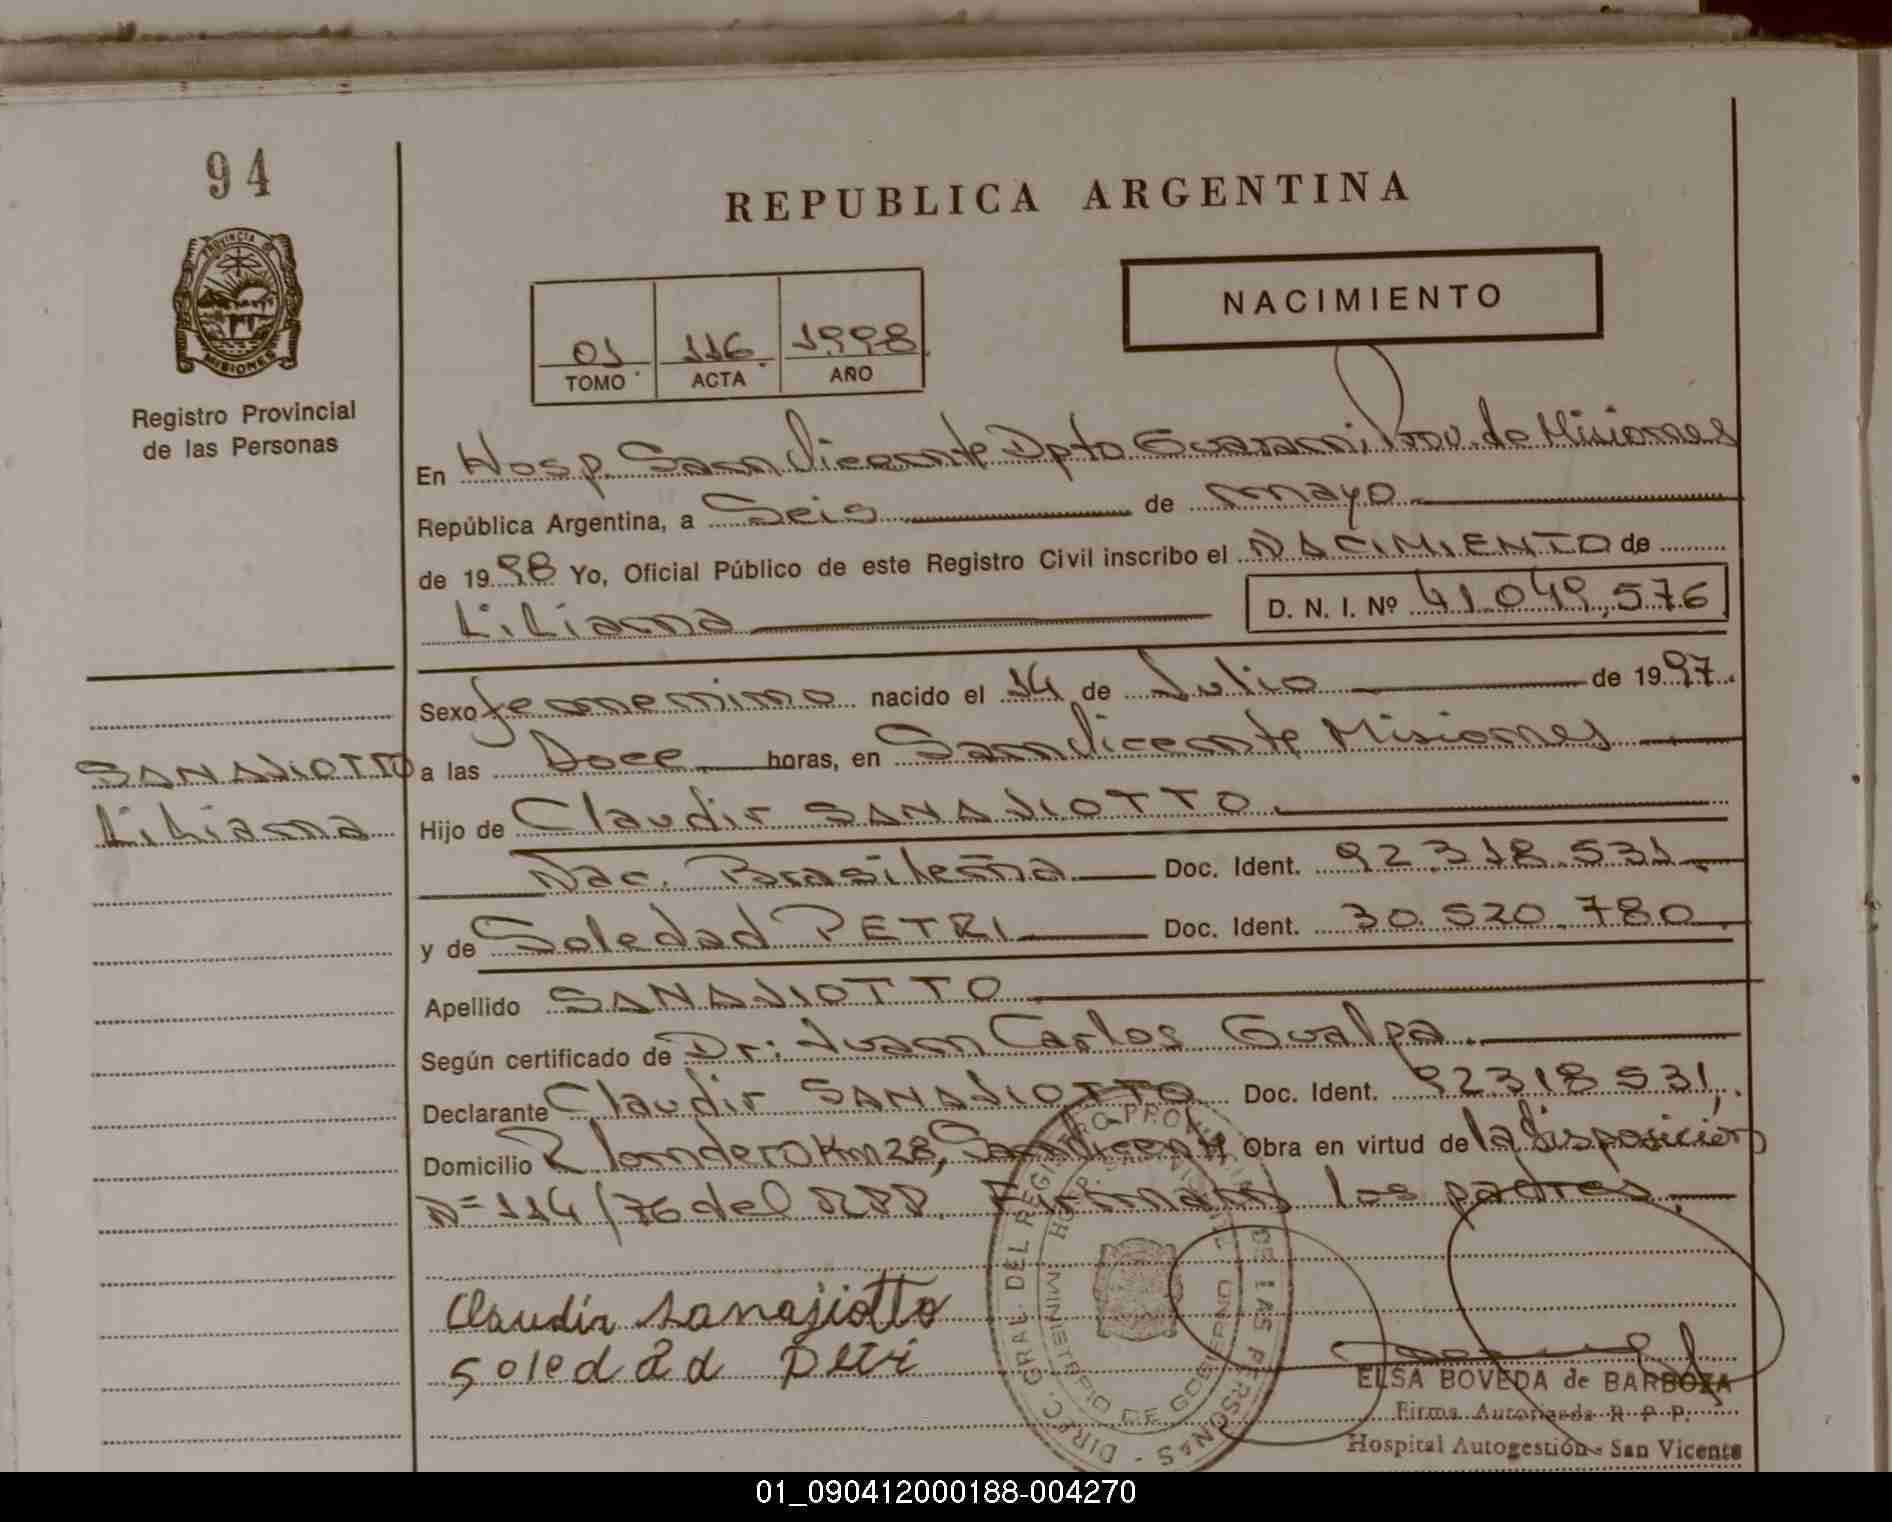 94
PROVINCIA DE
MISIONES
Registro Provincial
de las Personas
REPUBLICA ARGENTINA
NACIMIENTO
01 116 1998
TOMO ACTA AÑO
En Hosp. San Vicente Dpto Guarani Prov. de Misiones
República Argentina, a Seis de mayo
de 1998 Yo, Oficial Público de este Registro Civil inscribo el NACIMIENTO de
Liliana D. N. I. Nº 41.049.576
Sexo femenino nacido el 14 de Julio de 1997.
SANAJIOTTO
Liliana
a las Doce horas, en San Vicente Misiones
Hijo de Claudir SANAJIOTTO
Nac. Brasileña Doc. Ident. 92.318.531
y de Soledad PETRI Doc. Ident. 30.520.780
Apellido SANAJIOTTO
Según certificado de Dr: Juan Carlos Gualpa
Declarante Claudir SANAJIOTTO Doc. Ident. 92318531.
Domicilio Km 28, San Vicente Obra en virtud de la Disposición
Nº 114/76 del RPP. Firman los padres
Claudir Sanajiotto
Soledad Petri
DIREC. GRAL. DEL REGISTRO PROV. DE LAS PERSONAS
MINISTERIO DE GOBIERNO
ELSA BOVEDA de BARBOZA
Firma Autorizada R. P. P.
Hospital Autogestión - San Vicente
01_090412000188-004270